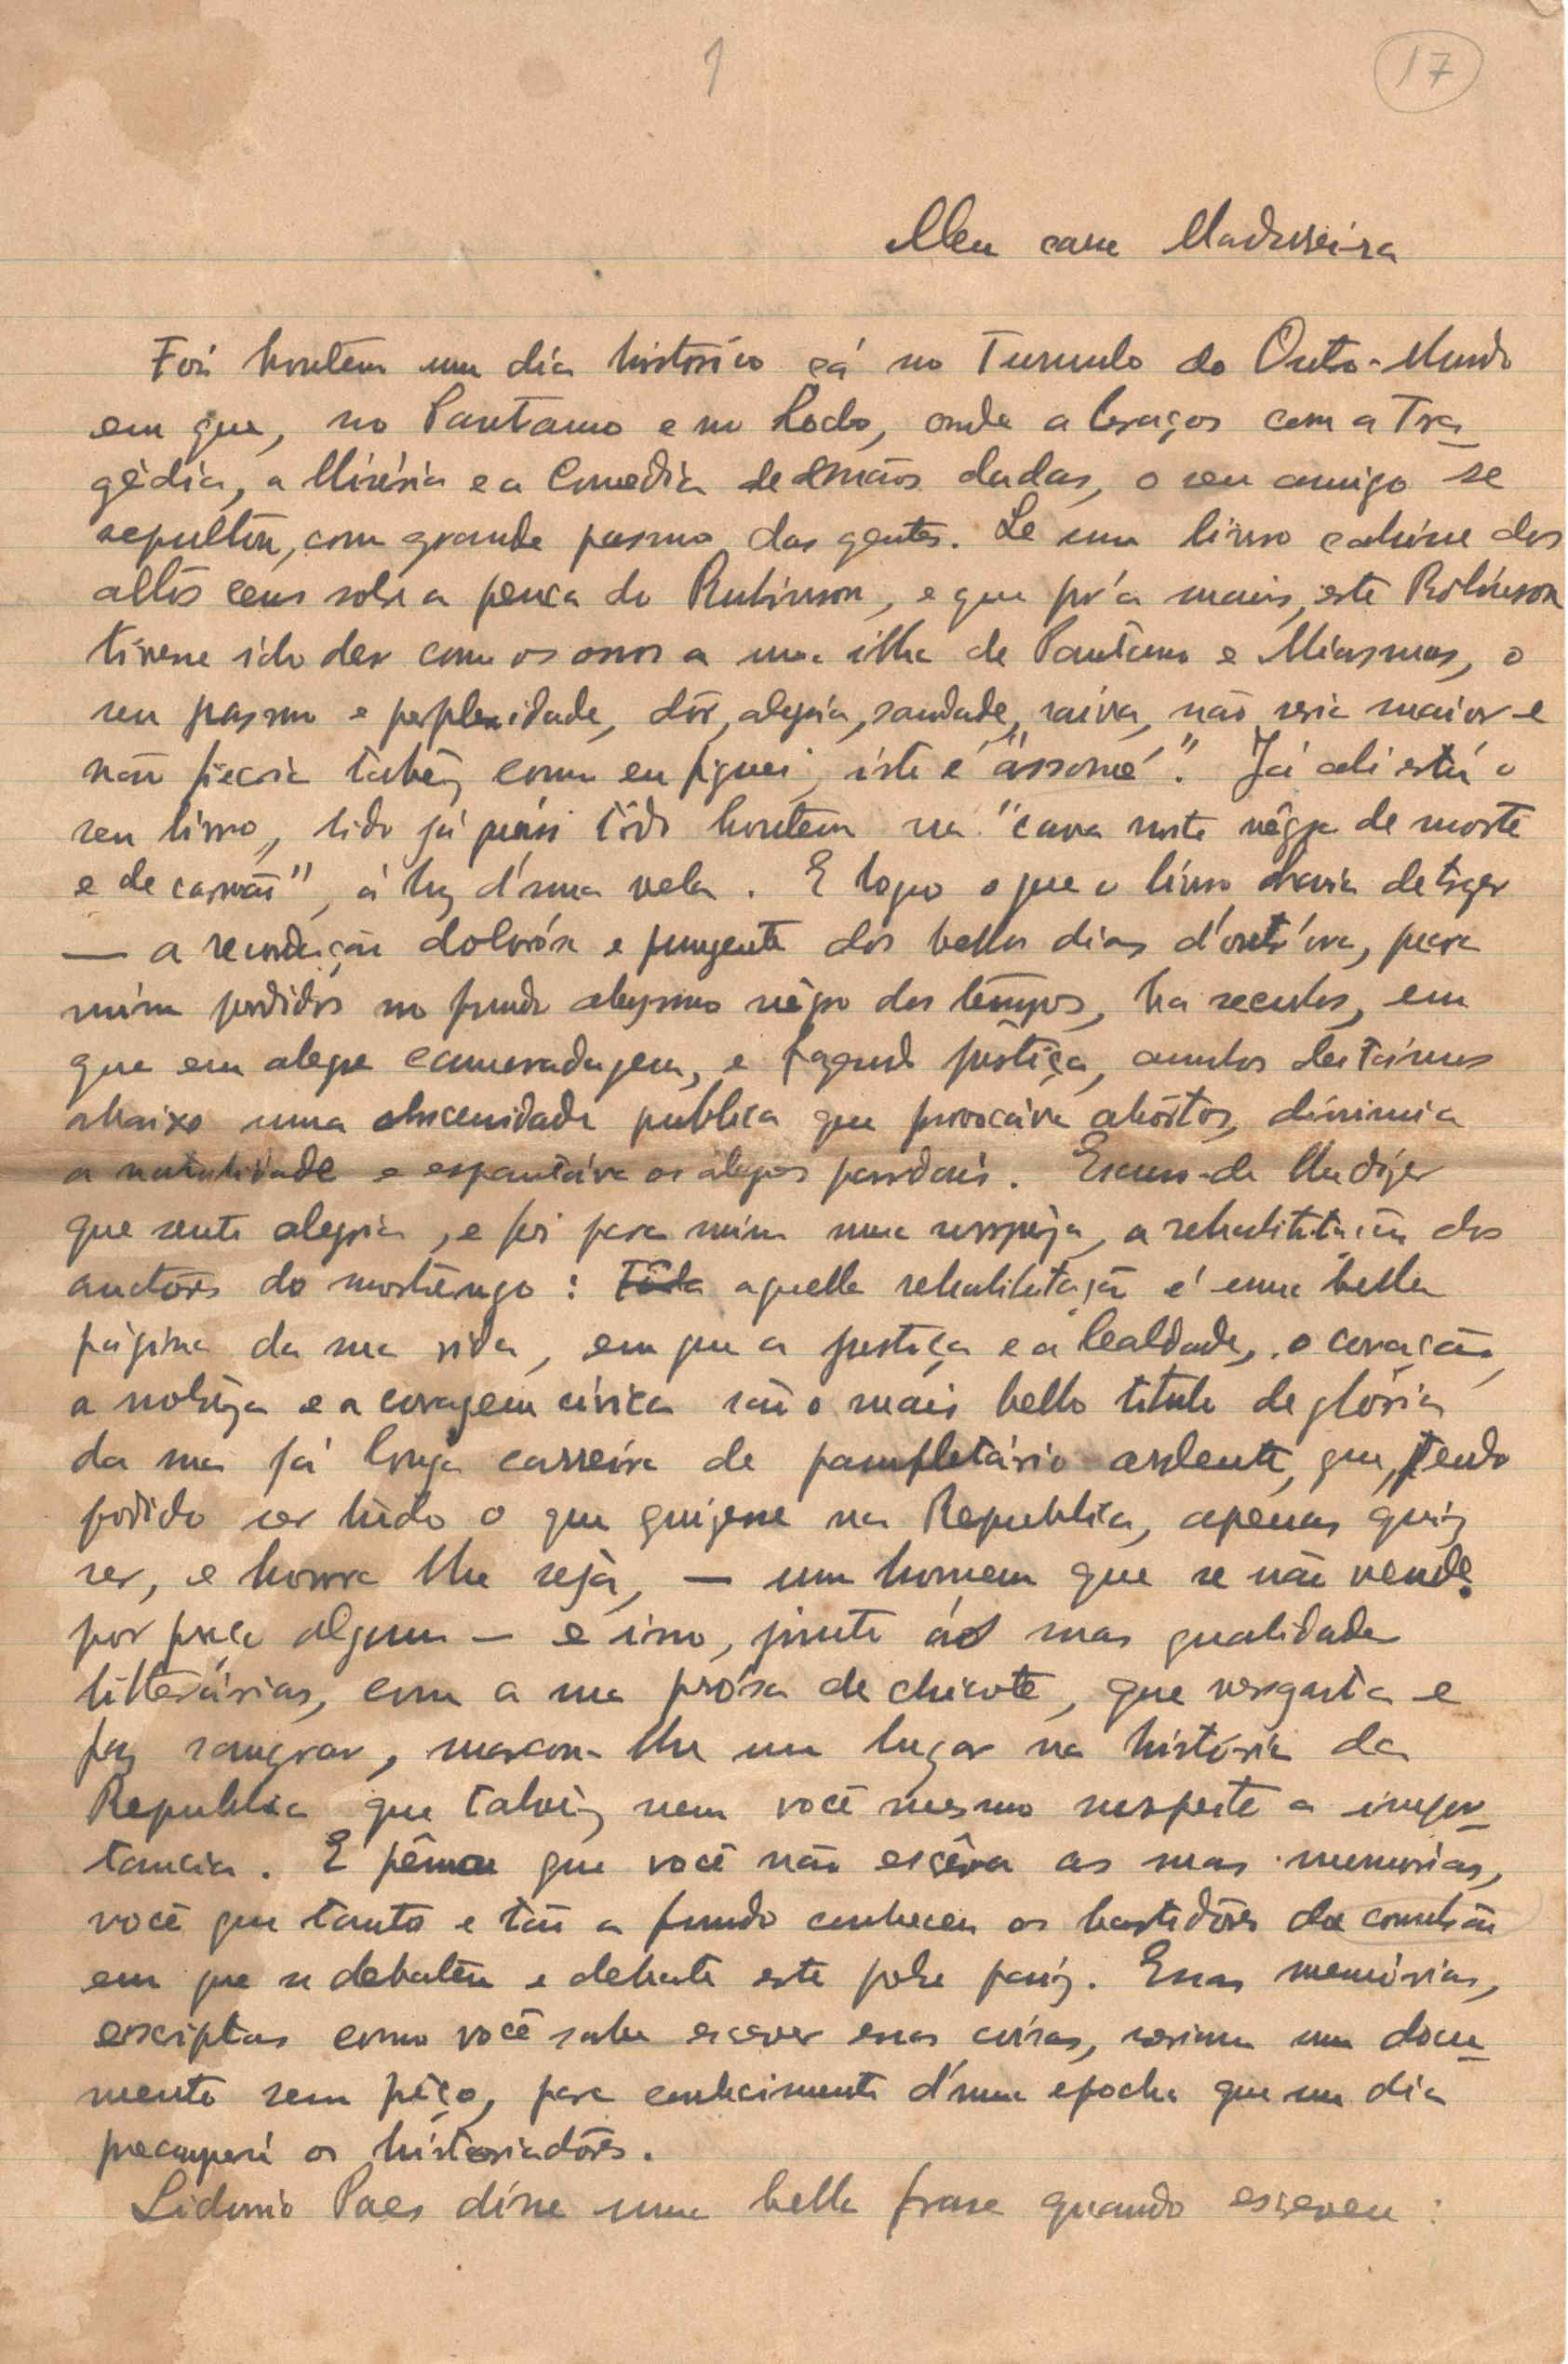 1
17
Meu caro Madureira
Foi hontem um dia historico cá no Tumulo do Outro-Mundo
em que, no Pantano e no Lodo, onde a braços com a Tra-
gédia, a Miséria e a Comedia de mãos dadas, o seu amigo se
sepultou, com grande pasmo das gentes. Se um livro cahisse dos
altos ceus sobre a penca do Rubinson, e que pr'a mais, este Robinson
tivesse ido dar com os ossos a uma ilha de Pantano e Miasmas, o
seu pasmo e perplexidade, dôr, alegria, saudade, raiva, não seria maior e
não ficaria tambem como eu fiquei, isto é "assomé". Já ali está o
seu livro, lido já quasi tôdo hontem na "cava noite négra de morte
e de carvão", á luz d'uma vela. E logo o que o livro havia de trazer
— a recordação dolorósa e pungente dos bellos dias d'outr'ora, para
mim perdidos no fundo abysmo négro dos tempos, ha seculos, em
que em alegre camaradagem, e fazendo justiça, ambos deitámos
abaixo uma obscenidade publica que provocáva abórtos, diminuia
a natalidade e espantáva os alegres pardais. Escuso de lhe dizer
que senti alegria, e foi para mim uma surpreza, a rehabilitação dos
auctôres do mostrengo: Tôda aquella rehabilitação é uma bella
página da sua vida, em que a justiça e a lealdade, o coração,
a nobrêza e a coragem civica são o mais bello titulo de glória
da sua já longa carreira de pamfletário ardente, que, tendo
podido ser tudo o que quizesse na Republica, apenas quiz
ser, e honra lhe seja, — um homem que se não vende
por preço algum — e isso, junto ás suas qualidades
litterárias, com a sua prósa de chicote, que vergasta e
faz sangrar, marcou-lhe um lugar na história da
Republica que talvez nem você mesmo suspeite a impor-
tancia. E pêna que você não escrêva as suas memorias,
você que tanto e tão a fundo conheceu os bastidôres da convulsão
em que se debateu e debate este pobre paiz. Essas memórias,
escriptas como você sabe escrever essas coisas, seriam um docu-
mento sem prêço, para conhecimento d'uma epocha que um dia
preocupará os historiadôres.
Sidonio Paes disse uma bella frase quando escreveu: